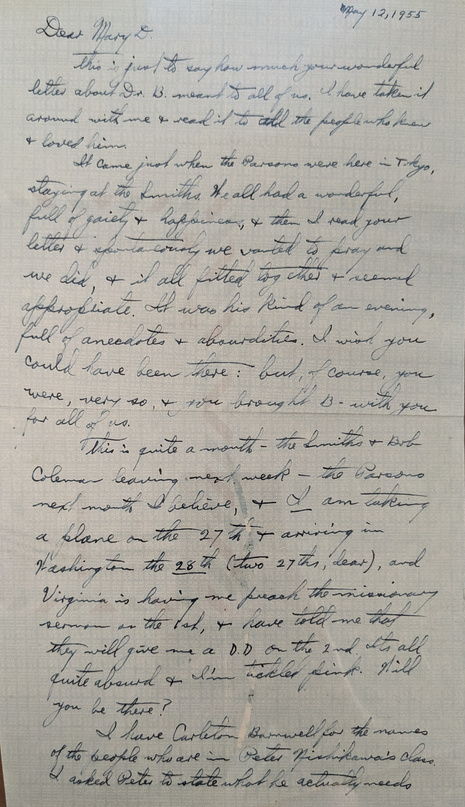 May 12, 1955
Dear Mary D.
This is just to say how much your wonderful
letter about Dr. B. meant to all of us. I have taken it
around with me & read it to all the people who knew
& loved him.
It came just when the Parsons were here in Tokyo,
staying at the Smiths. We all had a wonderful,
full of gaiety & happiness, & then I read your
letter & spontaneously we wanted to pray and
we did, & it all fitted together & seemed
appropriate. It was his kind of an evening,
full of anecdotes & absurdities. I wish you
could have been there: but, of course, you
were, very so, & you brought B- with you
for all of us.
This is quite a month - the Smiths & Bob
Coleman leaving next week - the Parsons
next month I believe, & I am taking
a plane on the 27th & arriving in
Washington the 28th (two 27ths, dear), and
Virginia is having me preach the missionary
sermon on the 1st, & have told me that
they will give me a D.D on the 2nd. It's all
quite absurd & I'm tickled pink. Will
you be there?
I have Carleton Barnwell for the names
of the people who are in Peter Nishikawa's class.
I asked Peter to state what he actually needs